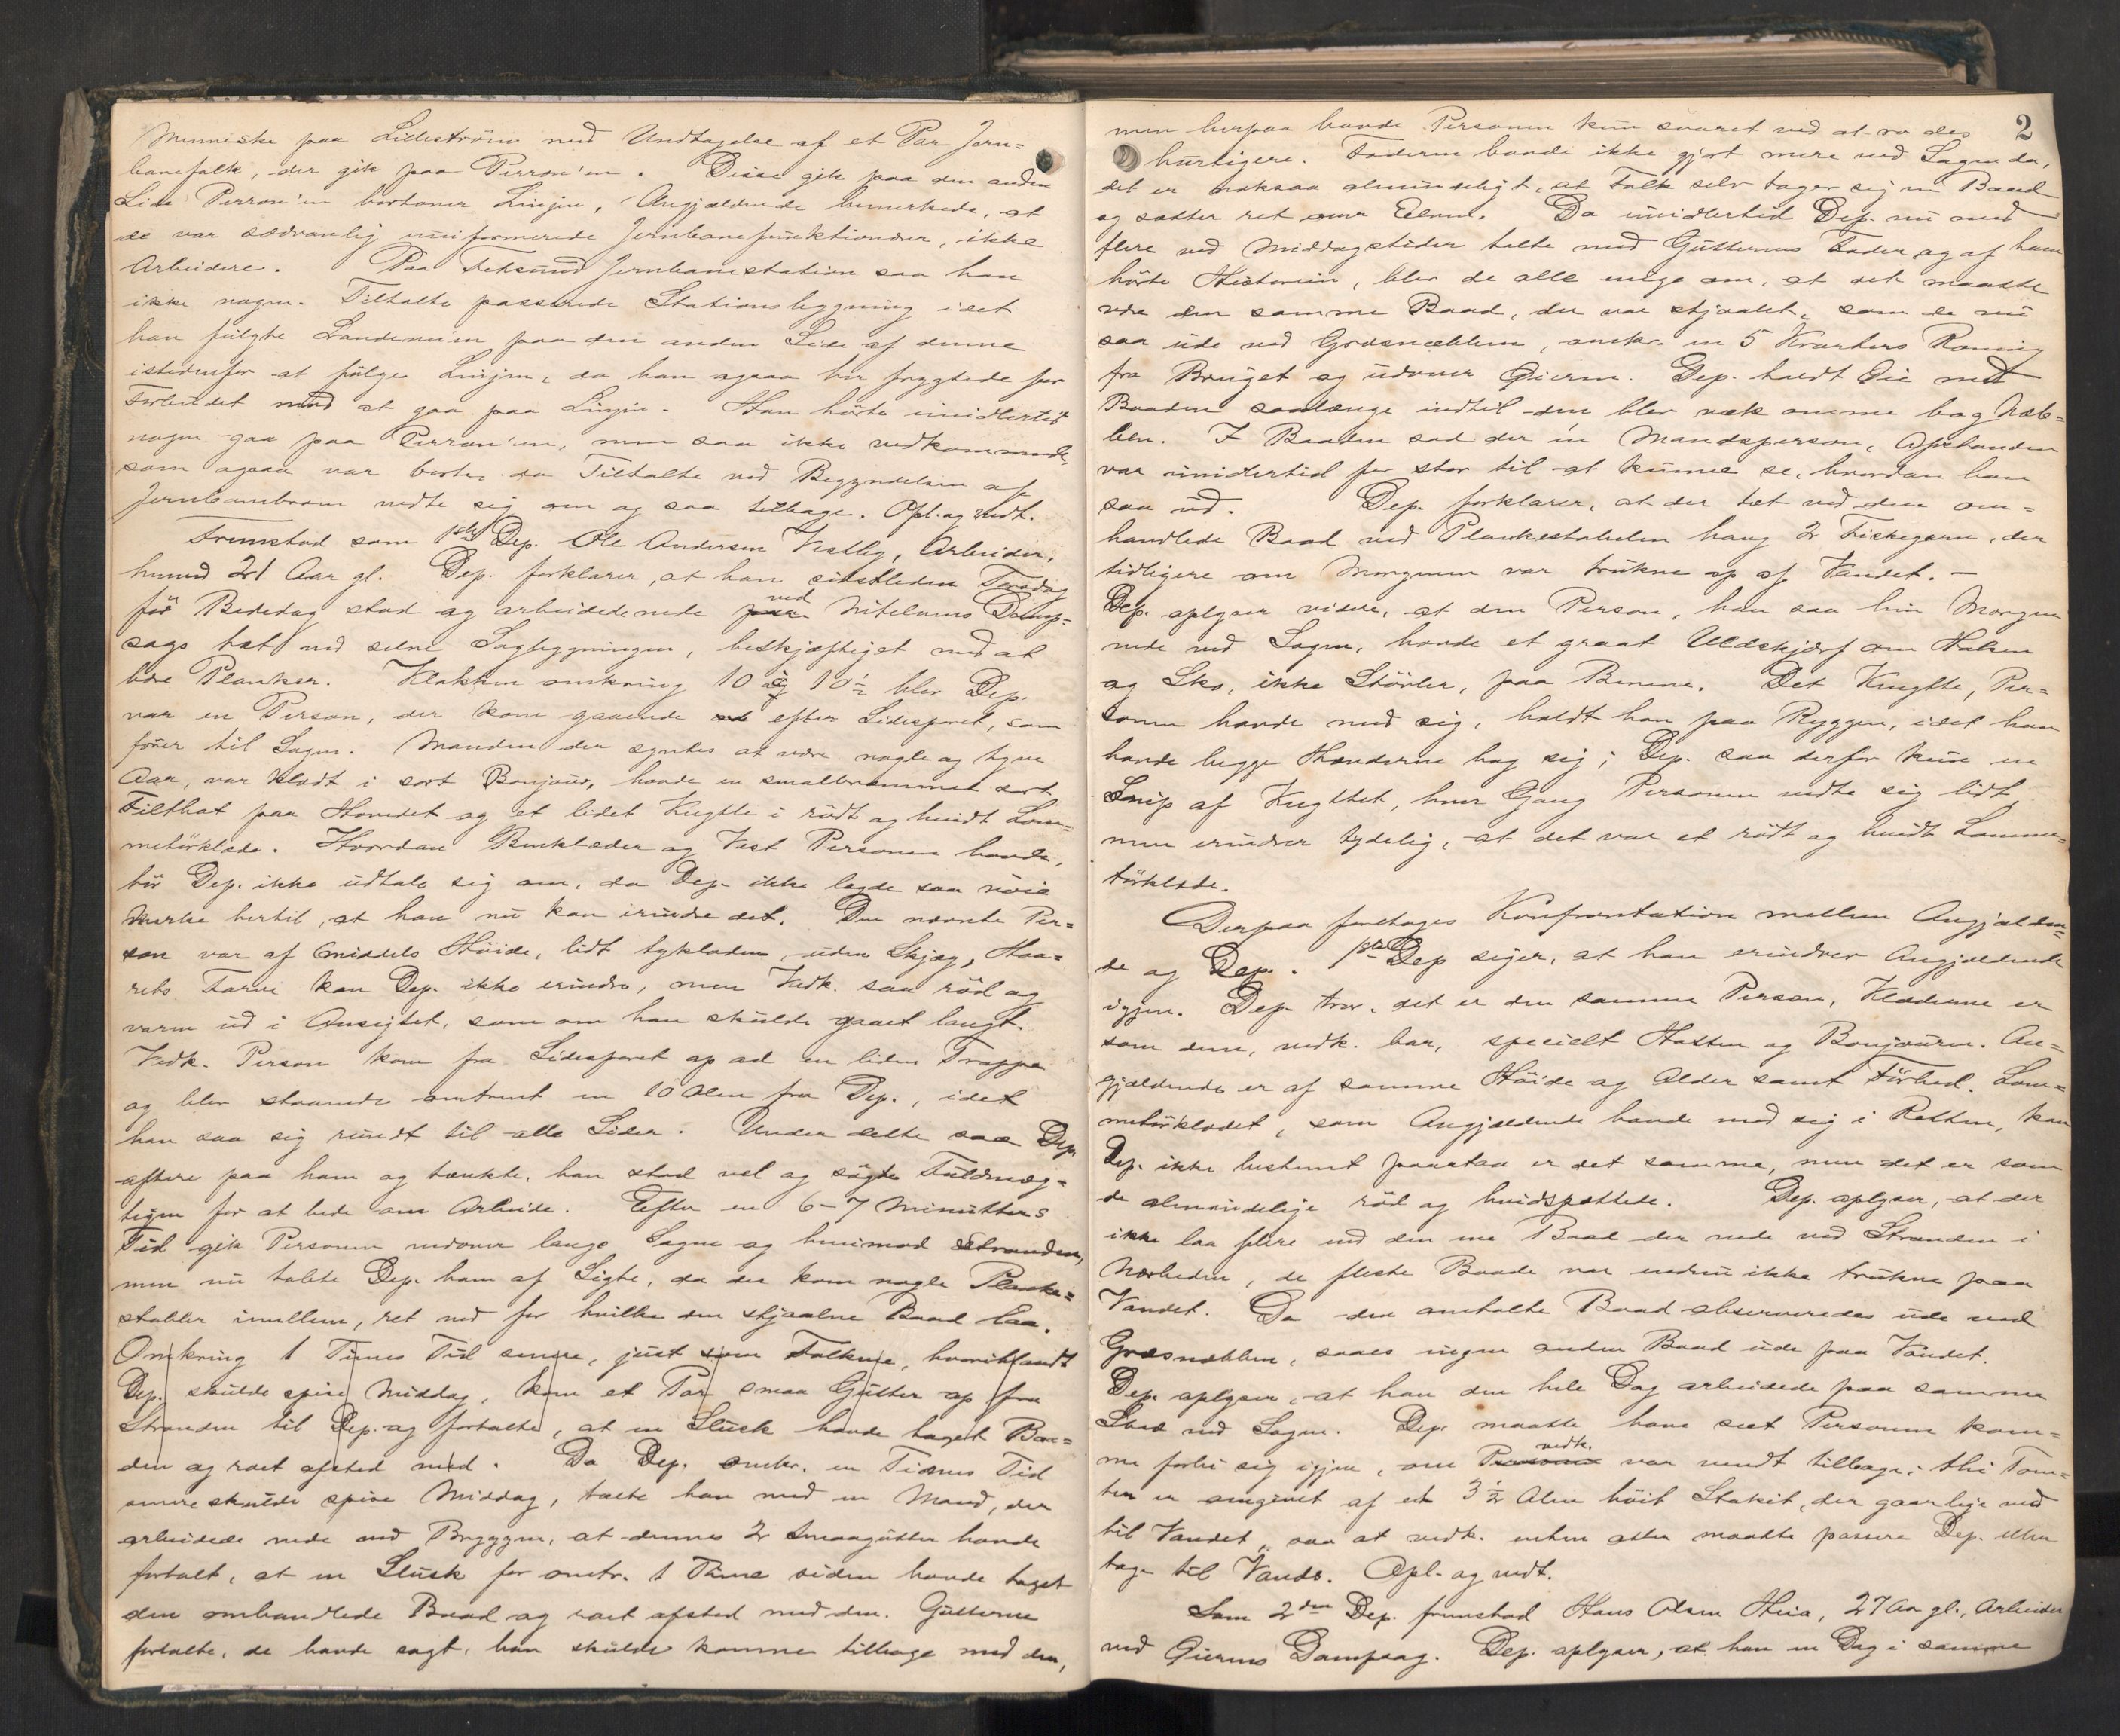 Menniske paa Lillestrøm med Undtagelse af et Par Jern=
banefolk, der gik paa Perron'en. Disse gik paa den anden
Side Perron'en bortover Linjen. Angjældende bemerkede, at
de var sædvanlig uniformerede Jernbanefunktionærer, ikke
Arbeidere. Paa Fetsund Jernbanestation saa han
ikke nogen. Tiltalte passerede Stationsbygning idet
han fulgte Landeveien paa den anden Side af denne
istedenfor at følge Linjen, da han ogsaa her frygtede for
Forbudet mod at gaa paa Linjen. Han hørte imidlertid
nogen gaa paa Perron'en, men saa ikke vedkommende,
som ogsaa var borte, da Tiltalte ved Begyndelsen af
Jernbanebroen vedte sig om og saa tilbage. Opl. og vedt.
Fremstod som 1ste Dep. Ole Andersen Vestby, Arbeider,
henved 21 Aar gl. Dep. forklarer, at han sidstleden Torsdag
før Bededag stod og arbeidede nede ved Nitelvens Damp=
sags tæt ved selve Sagbygningen, beskjæftiget med at
bære Planker. Klokken omkring 10 à 10½ blev Dep.
var en Person, der kom gaaende efter Sidesporet, som
fører til Sagen. Manden der syntes at være nogle og tyve
Aar, var klædt i sort Bonjour, havde en smalbremmet sort
Filthat paa Hovedet og et lidet Knytte i rødt og hvidt Lom=
metørklæde. Hvordan Benklæder og Vest Personen havde,
tør Dep. ikke udtale sig om, da Dep. ikke lagde saa nøie
Mærke hertil, at han nu kan erindre det. Den nævnte Per=
son var af middels Høide, lidt tykladen, uden Skjæg, Haa=
rets Farve kan Dep. ikke erindre, men Vedk. saa rød og
varm ud i Ansigtet, som om han skulde gaaet langt.
Vedk. Person kom fra Sidesporet op ad en liden Trappe
og blev staaende omtrent en 10 Alen fra Dep., idet
han saa sig rundt til alle Sider. Under dette saa Dep.
oftere paa ham og tænkte, han stod vel og søgte Fuldmæg=
tigen for at bede om Arbeide. Efter en 6-7 Minutters
Tid gik Personen nedover langs Sagen og henimod Stranden,
men nu tabte Dep. ham af Sigte, da der kom nogle Planke=
stabler imellem, ret ned for hvilke den stjaalne Baad laa.
Omkring 1 Times Tid senere, just som Folkene, hvoriblandt
Dep. skulde spise Middag, kom et Par smaa Gutter op fra
Stranden til Dep. og fortalte, at en Slusk havde taget Baa=
den og roet afsted med. Da Dep. omkr. en Times Tid
senere skulde spise Middag, talte han med en Mand, der
arbeidede nede ved Bryggen, at dennes 2 Smaagutter havde
fortalt, at en Slusk for omtr. 1 Time siden havde taget
den omhandlede Baad og roet afsted med den. Gutterne
fortalte, de havde sagt, han skulde komme tilbage med den,
2
men herpaa havde Personen kun svaret ved at ro des
hurtigere. Faderen havde ikke gjort mere ved Sagen da,
det er noksaa almindeligt, at Folk selv tager sig en Baad
og sætter ret over Elven. Da imidlertid Dep. nu med
flere ved Middagstider talte med Gutternes Fader og af ham
hørte Historien, blev de alle enige om, at det maatte
være den samme Baad, der var stjaalet, som de nu
saa ude ved Græsnæbben, omkr. en 5 Kvarters Roning
fra Bruget og udover Øieren. Dep. holdt Øie med
Baaden saalænge indtil den blev væk omme bag Næb=
ben. I Baaden sad der en Mandsperson, Afstanden
var imidlertid for stor til at kunne se, hvordan han
saa ud. Dep. forklarer, at der tæt ved den om=
handlede Baad ved Plankestabelen hang 2 Fiskegarn, der
tidligere om Morgenen var trukne op af Vandet. —
Dep. oplyser videre, at den Person, han saa hin Morgen
nede ved Sagen, havde et graat Uldskjærf om Halsen
og Sko, ikke Støvler, paa Benene. Det Knytte, Per=
sonen havde med sig, holdt han paa Ryggen, idet han
havde begge Hænderne bag sig; Dep. saa derfor kun en
Snip af Knyttet, hver Gang Personen vedte sig lidt,
men erindrer tydelig, at det var et rødt og hvidt Lomme=
tørklæde.
Derpaa foretages Konfrontation mellem Angjælden=
de og Dep. 1ste Dep siger, at han erindrer Angjældende
igjen. Dep. tror, det er den samme Person, Klæderne er
som dem, vedk. bar, specielt Hatten og Bonjouren. An=
gjældende er af samme Høide og Alder samt Førhed. Lom=
metørklædet, som Angjældende havde med sig i Retten, kan
Dep. ikke bestemt paastaa er det samme, men det er som
de almindelige rød og hvidspættede. Dep. oplyser, at der
ikke laa flere end den ene Baad der nede ved Stranden i
Nærheden, de fleste Baade var endnu ikke trukne paa
Vandet. Da den omtalte Baad observeredes ude ved
Græsnæbben, saaes ingen anden Baad ude paa Vandet.
Dep. oplyser, at han den hele Dag arbeidede paa samme
Sted ved Sagen. Dep. maatte have seet Personen kom=
me forbi sig igjen, om vedk. var vendt tilbage; thi Tom=
ten er omgivet af et 3½ Alen høit Stakit, der gaar lige ned
til Vandet, saa at vedk. enten atter maatte passere Dep. eller
tage til Vands. Opl. og vedt.
Som 2den Dep. fremstod Hans Olsen Hvia, 27 Aar gl., Arbeider
ved Øierens Dampsag. Dep. oplyser, at han en Dag i samme